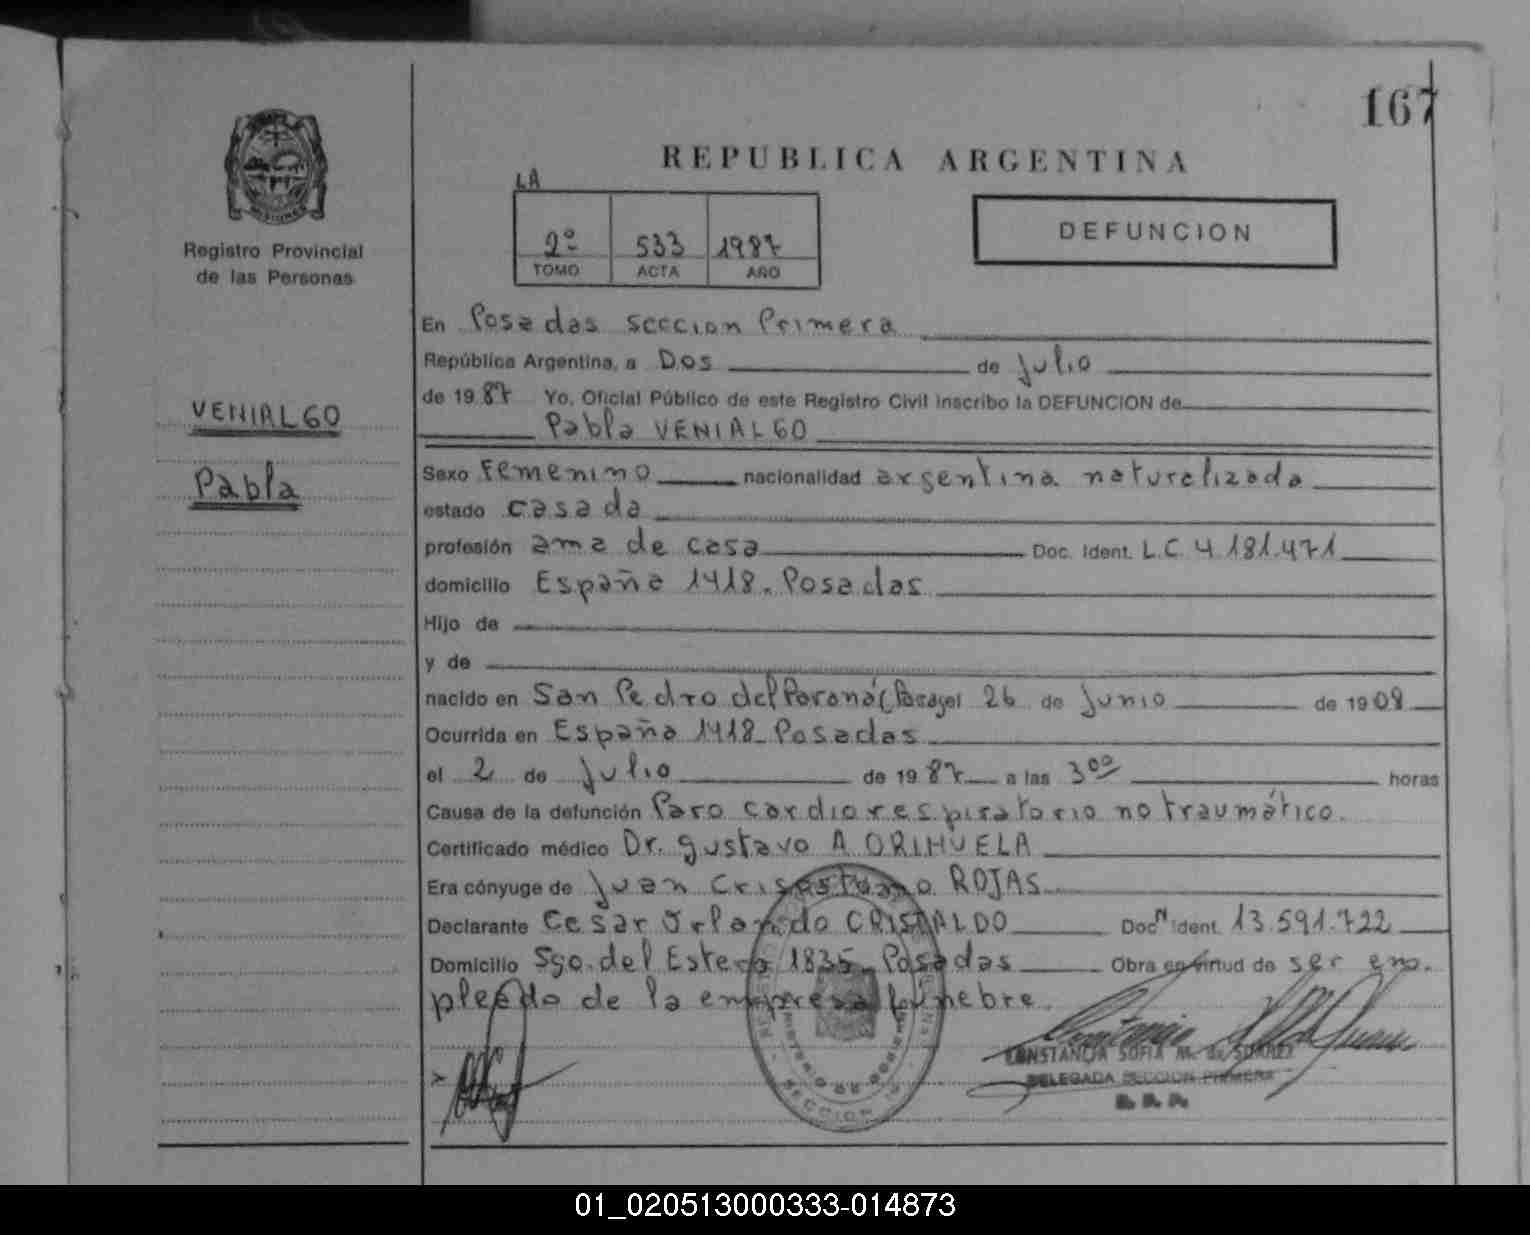 167
REPUBLICA ARGENTINA
MISIONES
Registro Provincial
de las Personas
LA
2º 533 1987
TOMO ACTA AÑO
DEFUNCION
VENIALGO
Pabla
En Posadas seccion Primera
República Argentina, a Dos de julio
de 1987 Yo, Oficial Público de este Registro Civil inscribo la DEFUNCION de
Pabla VENIALGO
Sexo Femenino nacionalidad argentina naturalizada
estado casada
profesión ama de casa Doc. Ident. L.C 4.181.471
domicilio España 1418. Posadas
Hijo de
y de
nacido en San Pedro del Paraná el 26 de junio de 1908
Ocurrida en España 1418 Posadas
el 2 de julio de 1987 a las 3⁰⁰ horas
Causa de la defunción Paro cardiorespiratorio no traumático.
Certificado médico Dr. gustavo A ORIHUELA
Era cónyuge de Juan Crisostomo ROJAS
Declarante Cesar Orlando CRISTALDO Docᴺ Ident. 13.591.722
Domicilio Sgo. del Estero 1835. Posadas Obra en virtud de ser em.
pleado de la empresa fúnebre.
CONSTANCIA SOFIA M. de SUAREZ
DELEGADA SECCION PRIMERA
R. P. P.
SECCION
01_020513000333-014873